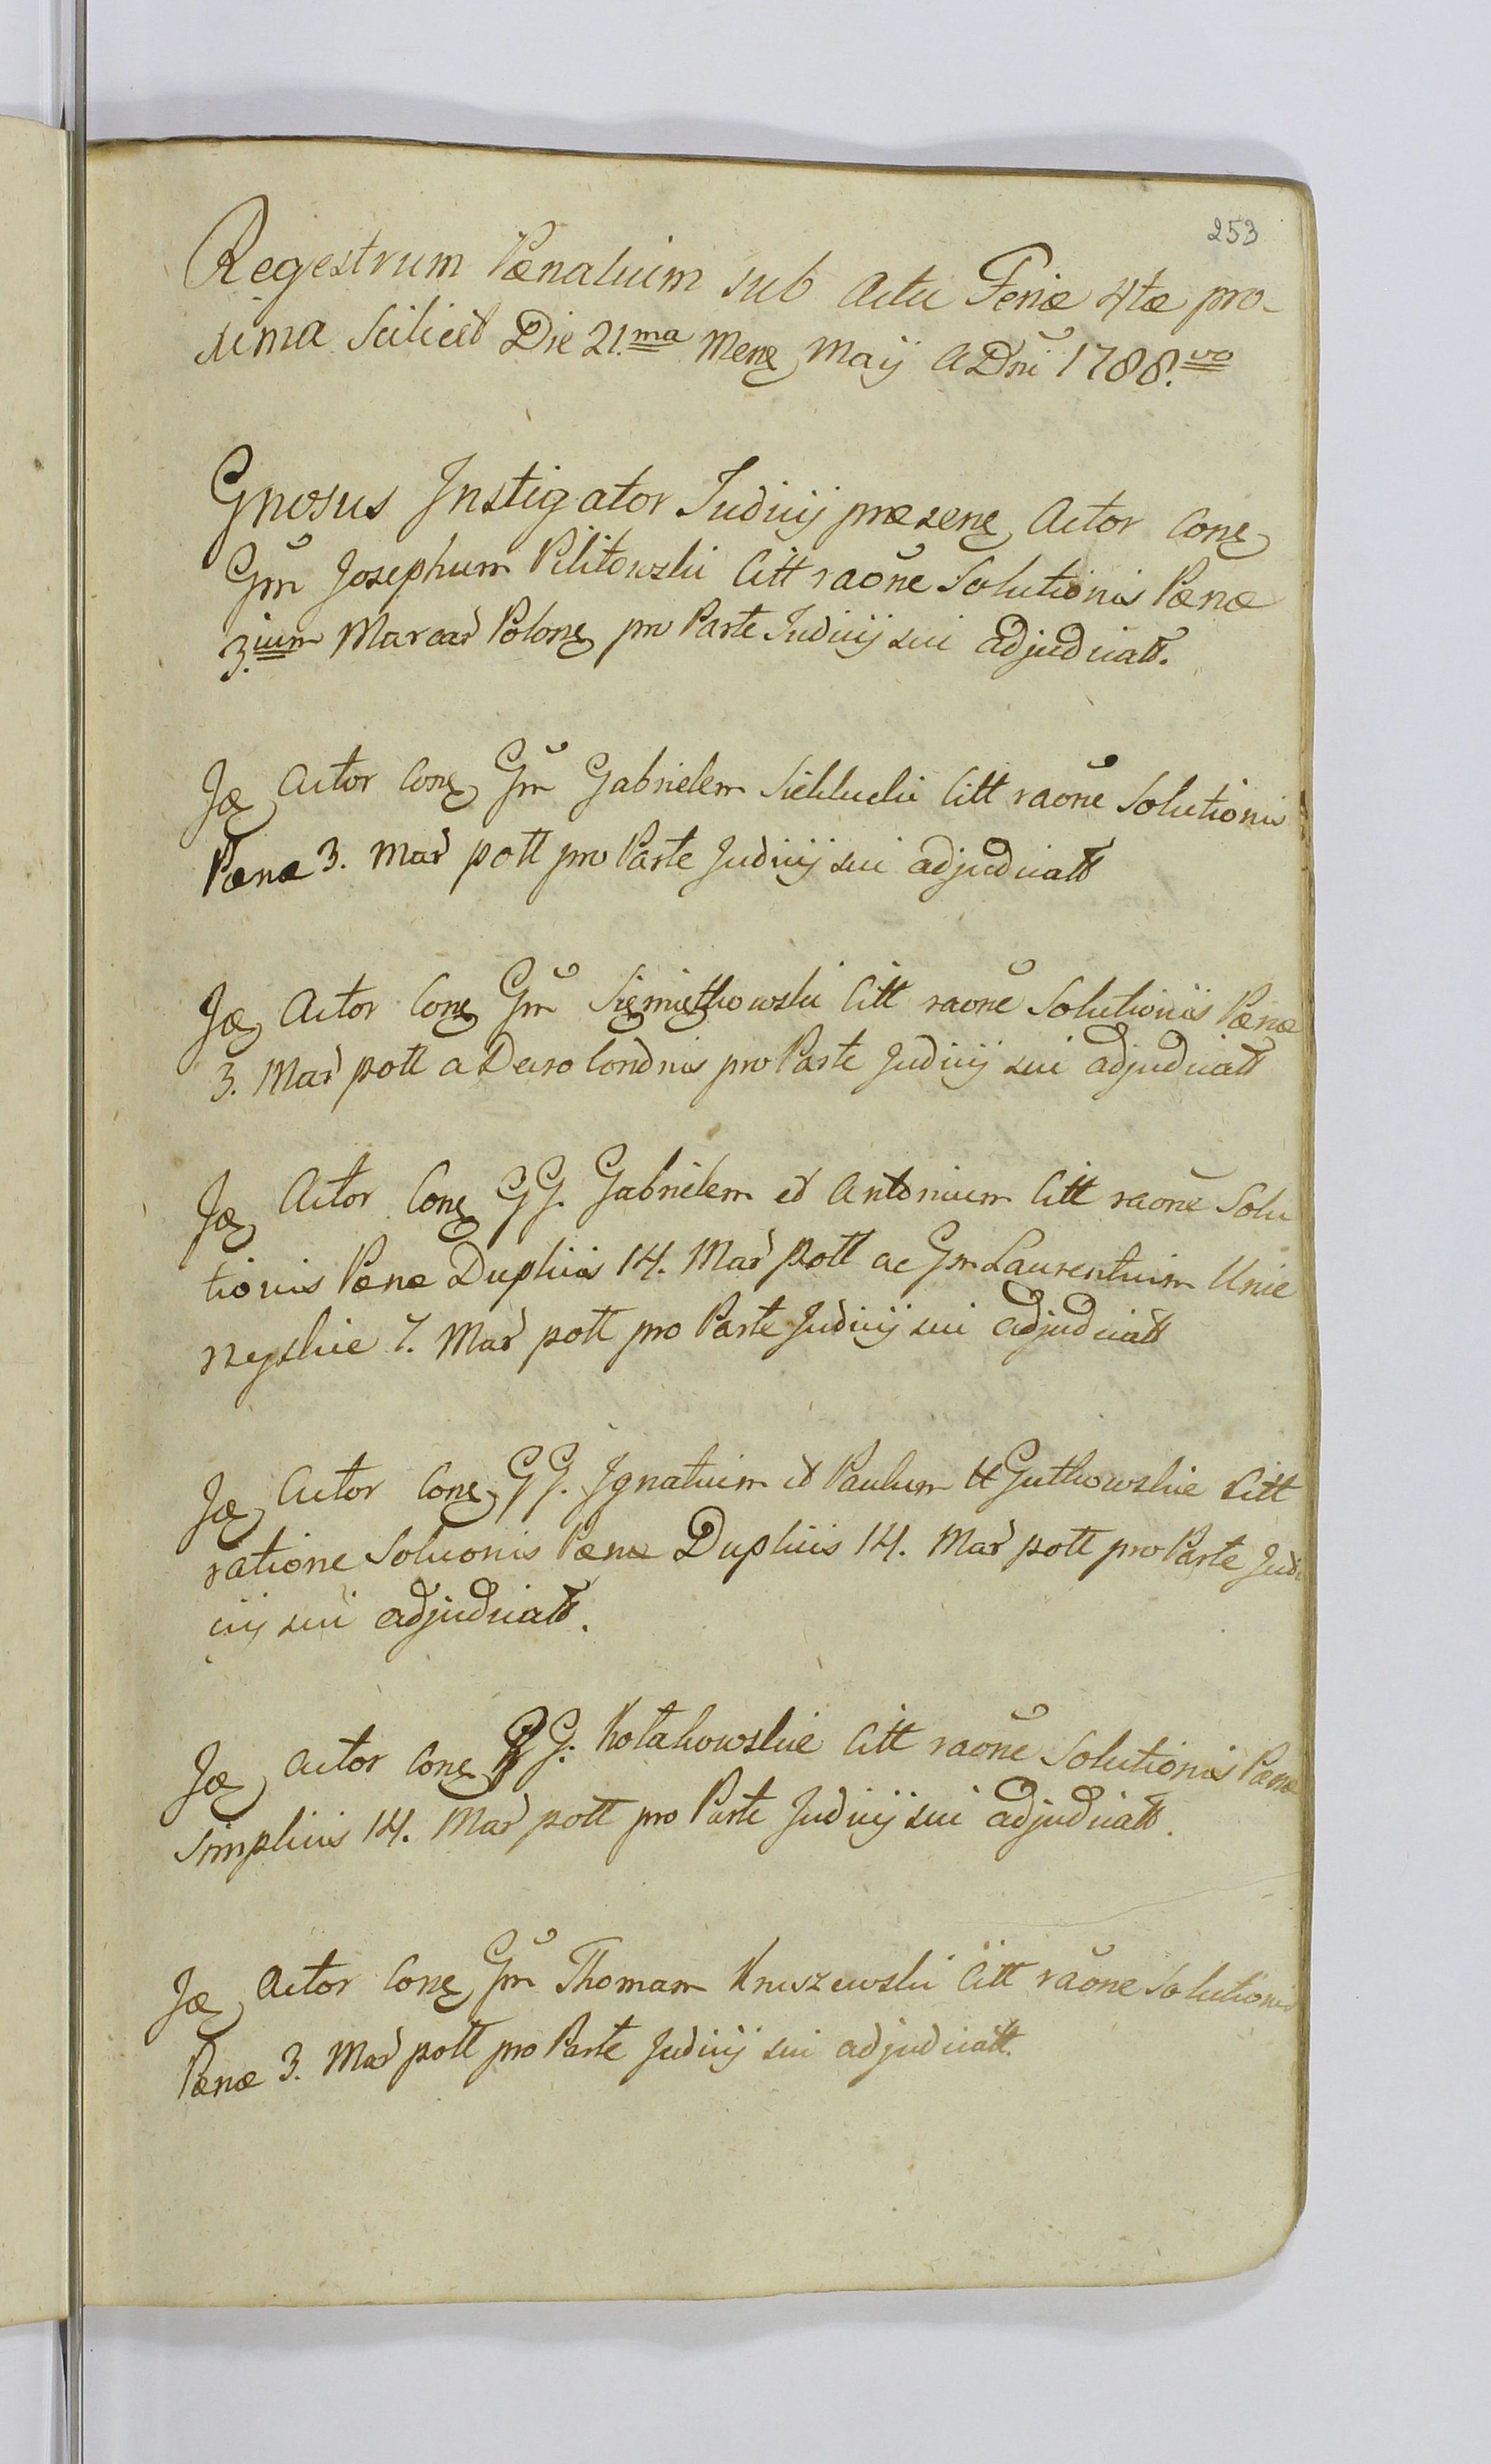 253
Regestrum Pænalium sub Actu Feriæ 4tæ pro-
xima Scilicet Die 21.ma Mens Maij A Dni 1788.vo
Gnosus Instigator Judicij præsens Actor Cons
Gm Josephum Pilitowski Citt raone Solutionis Pænæ
3.ium Marcar Polons pro Parte Judicij sui adjudicatt.
Is Actor Cons Gm Gabrielem Siekłucki Citt raone Solutionis
Pænæ 3. Mar poll pro Parte Judicij sui adjudicatt
Is Actor Cons Gm Siemiętkowski Citt raone Solutionis Pænæ
3. Mar poll a Decro Condnis pro Parte Judicij sui adjudicatt
Is Actor Cons GG. Gabrielem et Antonium Citt raone Solu
tionis Pænæ Duplicis 14. Mar poll ac Gm Laurentium Unie
rzyskie 7. Mar poll pro Parte Judicij sui adjudicatt
Is Actor Cons GG. Ignatium et Paulum Gutkowskie Citt
ratione Soluonis Pænæ Duplicis 14. Mar poll pro Parte Judi
cij sui adjudicatt.
Is Actor Cons GG. Kołakowskie Citt raone Solutionis Pænæ
Simplicis 14. Mar poll pro Parte Judicij sui adjudicatt.
Is Actor Cons Gm Thomam Kruszewski Citt raone Solutionis
Pænæ 3. Mar poll pro Parte Judicij sui adjudicatt.